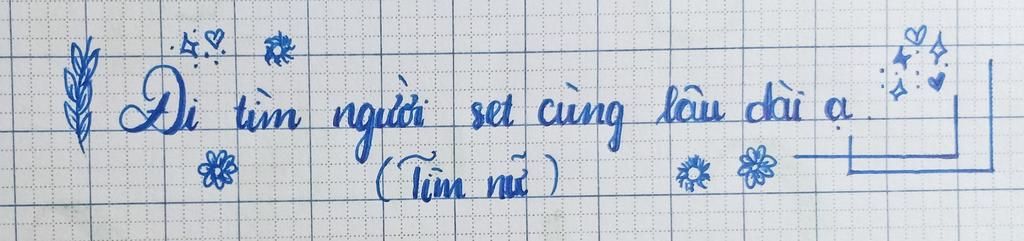 Đi tìm người set cùng lâu dài ạ.
(Tìm nữ)